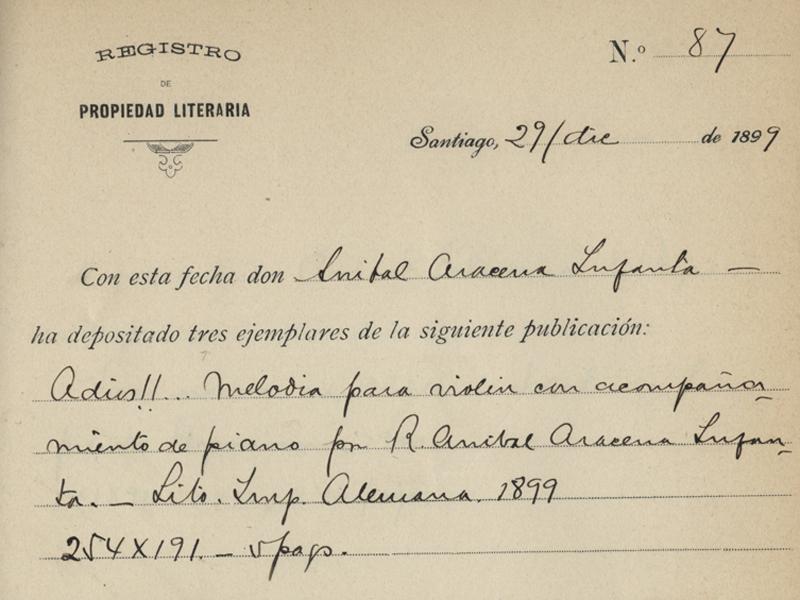 REGISTRO
DE
PROPIEDAD LITERARIA
N.º 87
Santiago, 29/dic de 1899
Con esta fecha don Anibal Aracena Infanta —
ha depositado tres ejemplares de la siguiente publicación:
Adios!!... Melodia para violin con acompaña-
miento de piano por R. Anibal Aracena Infan-
ta. — Lito. Imp. Alemana. 1899
254 X 191. — 5 pags.